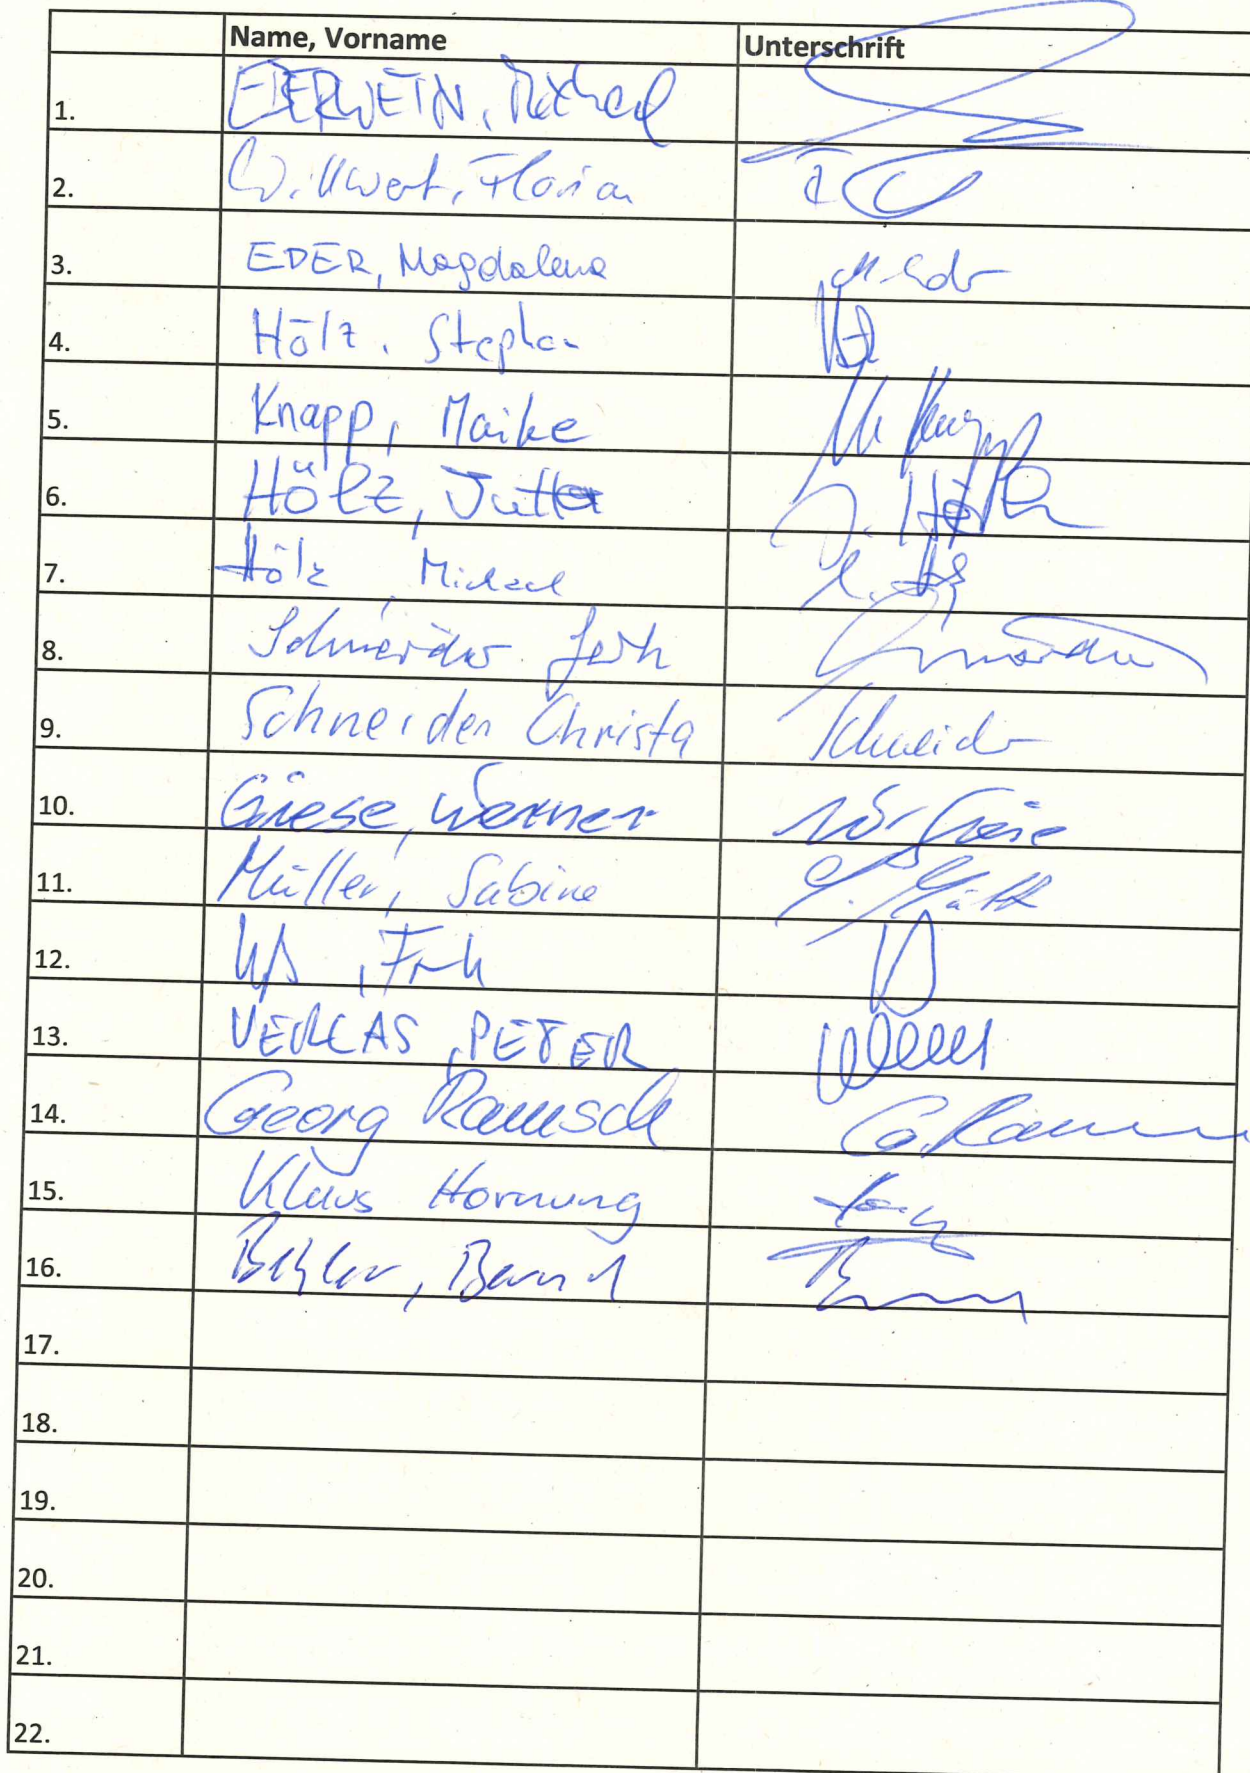 Name, Vorname Unterschrift
1. EBERWEIN, Michael
2. Willwert, Florian
3. EDER, Magdalena M. Eder
4. Hölz, Stephan
5. Knapp, Maike M. Knapp
6. Hölz, Jutta J. Hölz
7. Hölz, Michael
8. Schneider Schneider
9. Schneider Christa Schneider
10. Giese, Werner W. Giese
11. Müller, Sabine S. Müller
12.
13. VERLAS, PETER
14. Georg Ramsch G. Ram
15. Klaus Hornung
16. Bernd
17.
18.
19.
20.
21.
22.